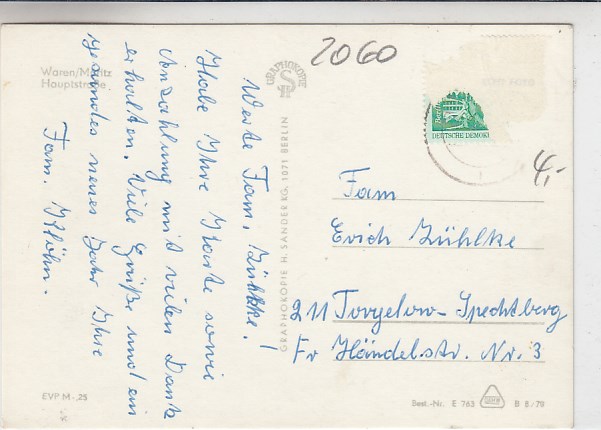 Waren/Müritz
Hauptstraße
2060
Werte Fam. Zühlke!
Habe Ihre Karte sowie
Anzahlung mit vielen Dank
erhalten. Viele Grüße und ein
gesundes neues Jahr Ihre
Fam.
GRAPHOKOPIE
GRAPHOKOPIE H. SANDER KG, 1071 BERLIN
Berlin
DEUTSCHE DEMOK
4,-
Fam
Erich Zühlke
211 Torgelow-Spechtberg
Fr Händelstr. Nr. 3
EVP M -,25
Best.-Nr. E 763 B 8/79